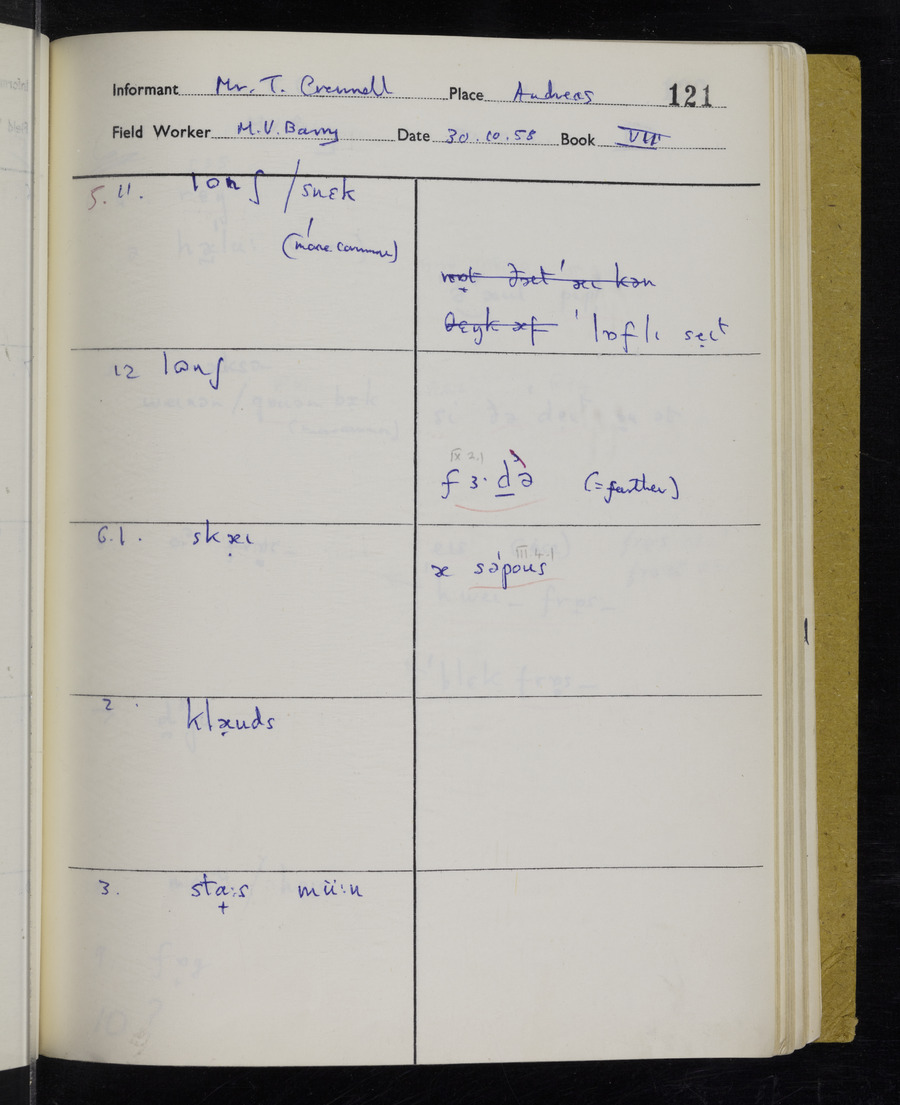 Informant Mr. T. Crennell Place Andreas 121
Field Worker M.V. Barry Date 30.10.58 Book VII
5.11. lɒnʃ / snɛk
(more common)
ˈlɒflɪ
12 lɒnʃ
IX 2.1
fɜ·d̪ə (= further)
6.1. skæ̣ɪ
III.4.1
æ səˈpous
2. klæ̣uds
3. sta̟:s mü:n